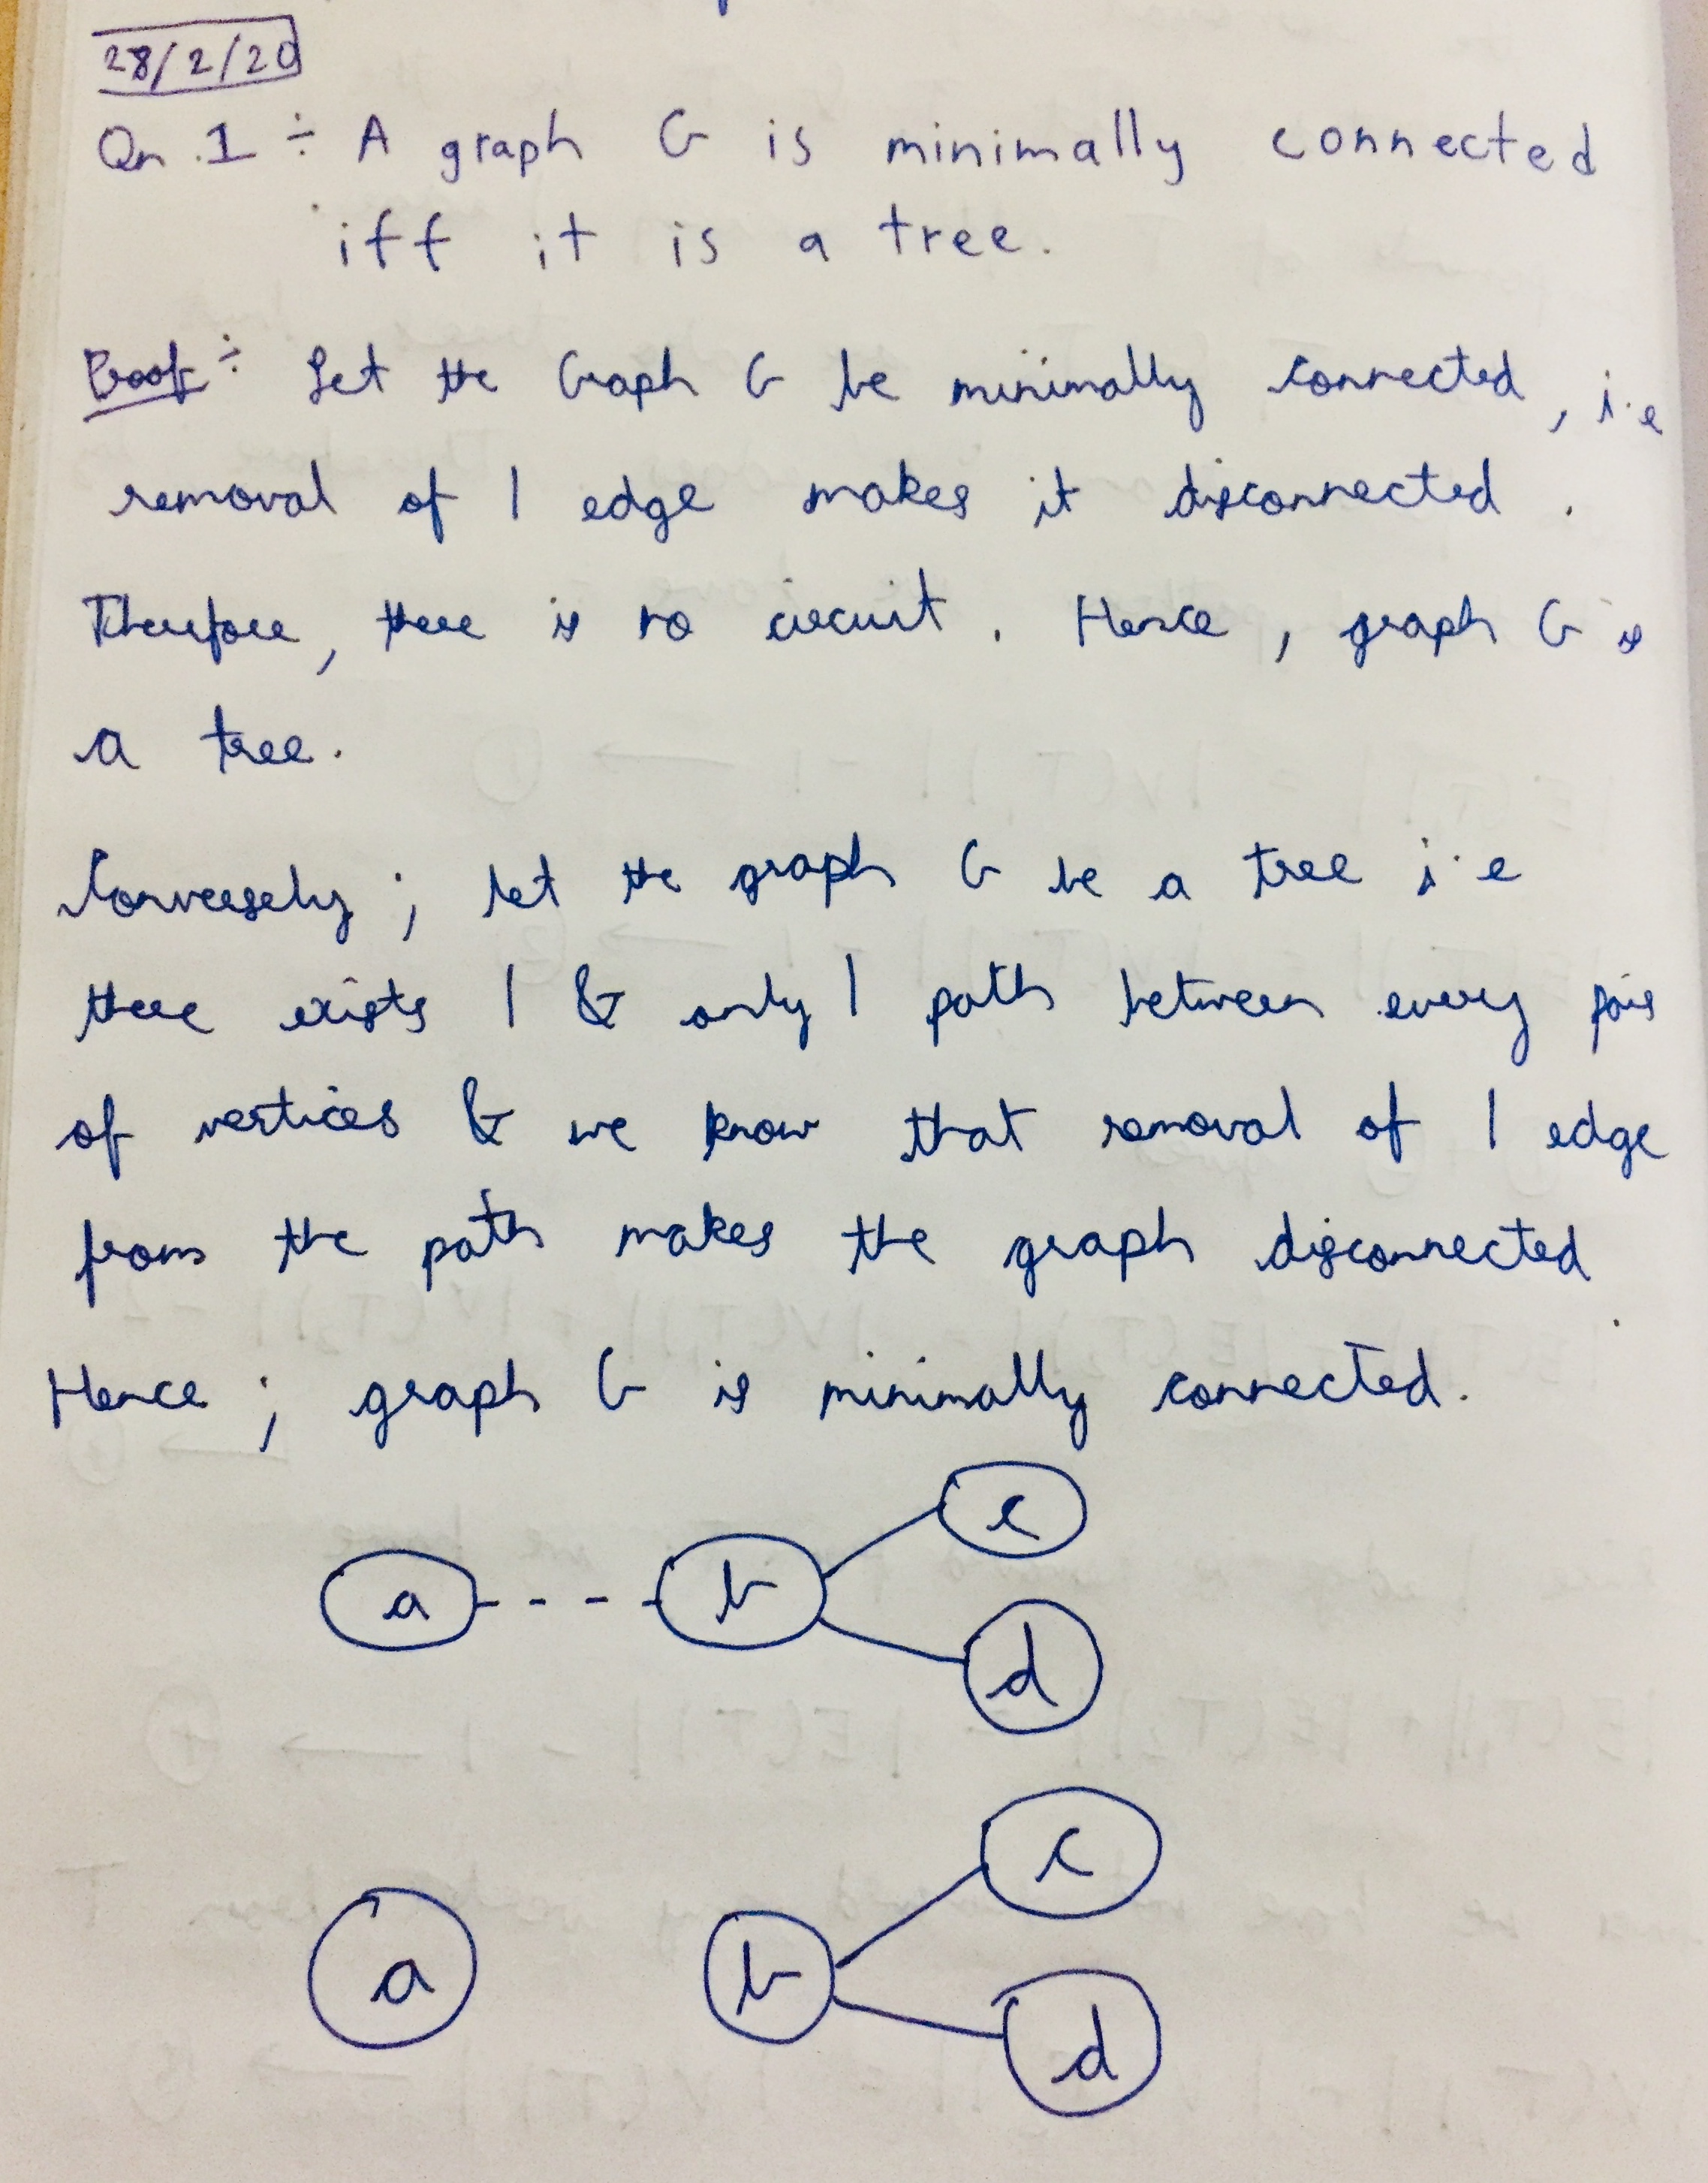 28/2/20
Qn.1 ÷ A graph G is minimally connected
iff it is a tree.
Proof ÷ Let the Graph G be minimally connected, i.e
removal of 1 edge makes it disconnected.
Therefore, there is no circuit. Hence, graph G is
a tree.
Conversely; let the graph G be a tree i.e
there exists 1 & only 1 path between every pair
of vertices & we know that removal of 1 edge
from the path makes the graph disconnected.
Hence; graph G is minimally connected.
c
a - - - b
d
c
a b
d